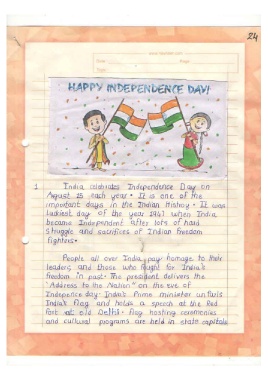 24
HAPPY INDEPENDENCE DAY!
1 India celebrates Independence Day on
August 15 each year. It is one of the
important days in the Indian History. It was
luckiest day of the year 1947 when India
became Independent after lots of hard
struggle and sacrifices of Indian freedom
fighters.
People all over India pay homage to their
leaders and those who fought for India's
freedom in past. The president delivers the
"Address to the Nation" on the eve of
Independence day. India's Prime minister unfurls
India's flag and holds a speech at the Red
Fort at old Delhi. Flag hosting ceremonies
and cultural programs are held in state capitals